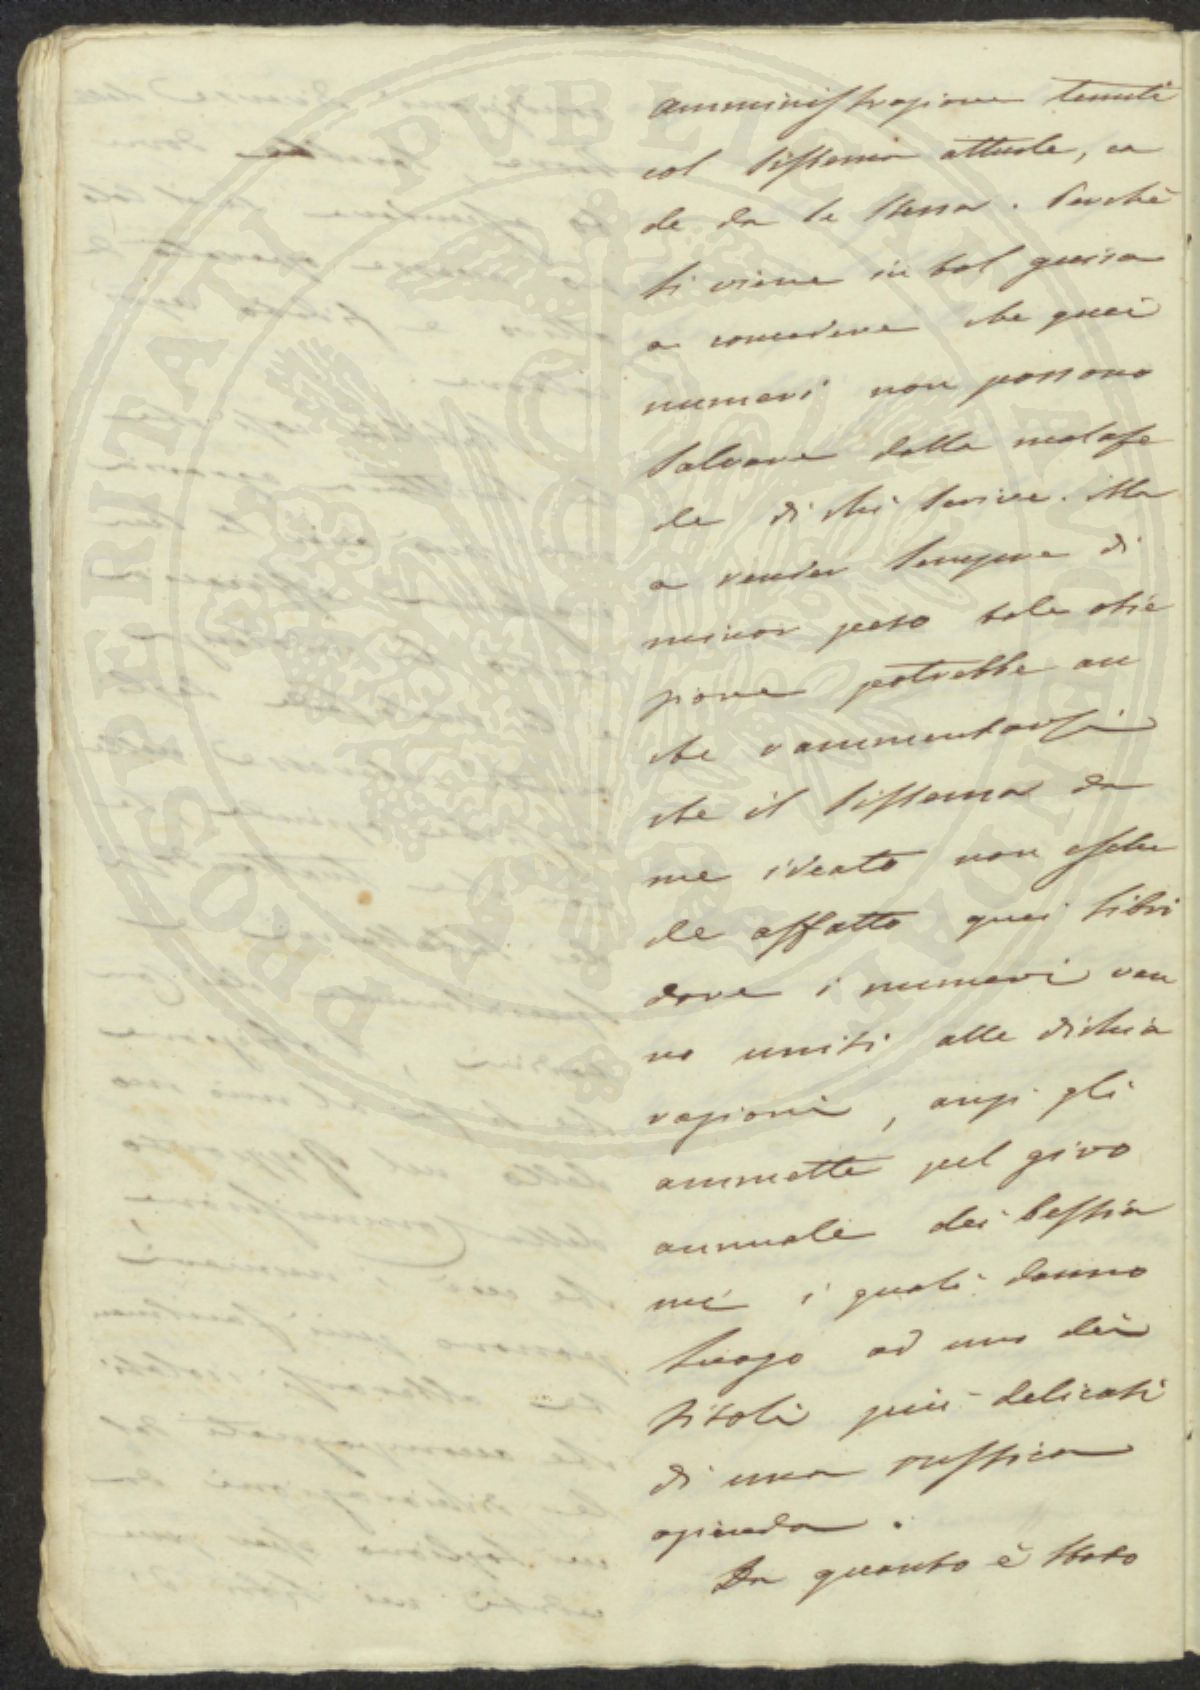 amministrazione tenuti
col sistema attuale, ca
de da se stessa. Perchè
si viene in tal guisa
a concedere che quei
numeri non possono
salvare dalla malafe
de di chi scrive. Ma
a render sempre di
minor peso tale obie
zione potrebbe an
che rammentarsi
che il sistema da
me ideato non esclu
de affatto quei libri
dove i numeri van
no uniti alle dichia
razioni, anzi gli
ammette pel giro
annuale dei bestia
mi i quali danno
luogo ad uno dei
titoli più delicati
di una rustica
azienda.
Da quanto è stato
PROSPERITATI PVBLICAE AVGENDAE